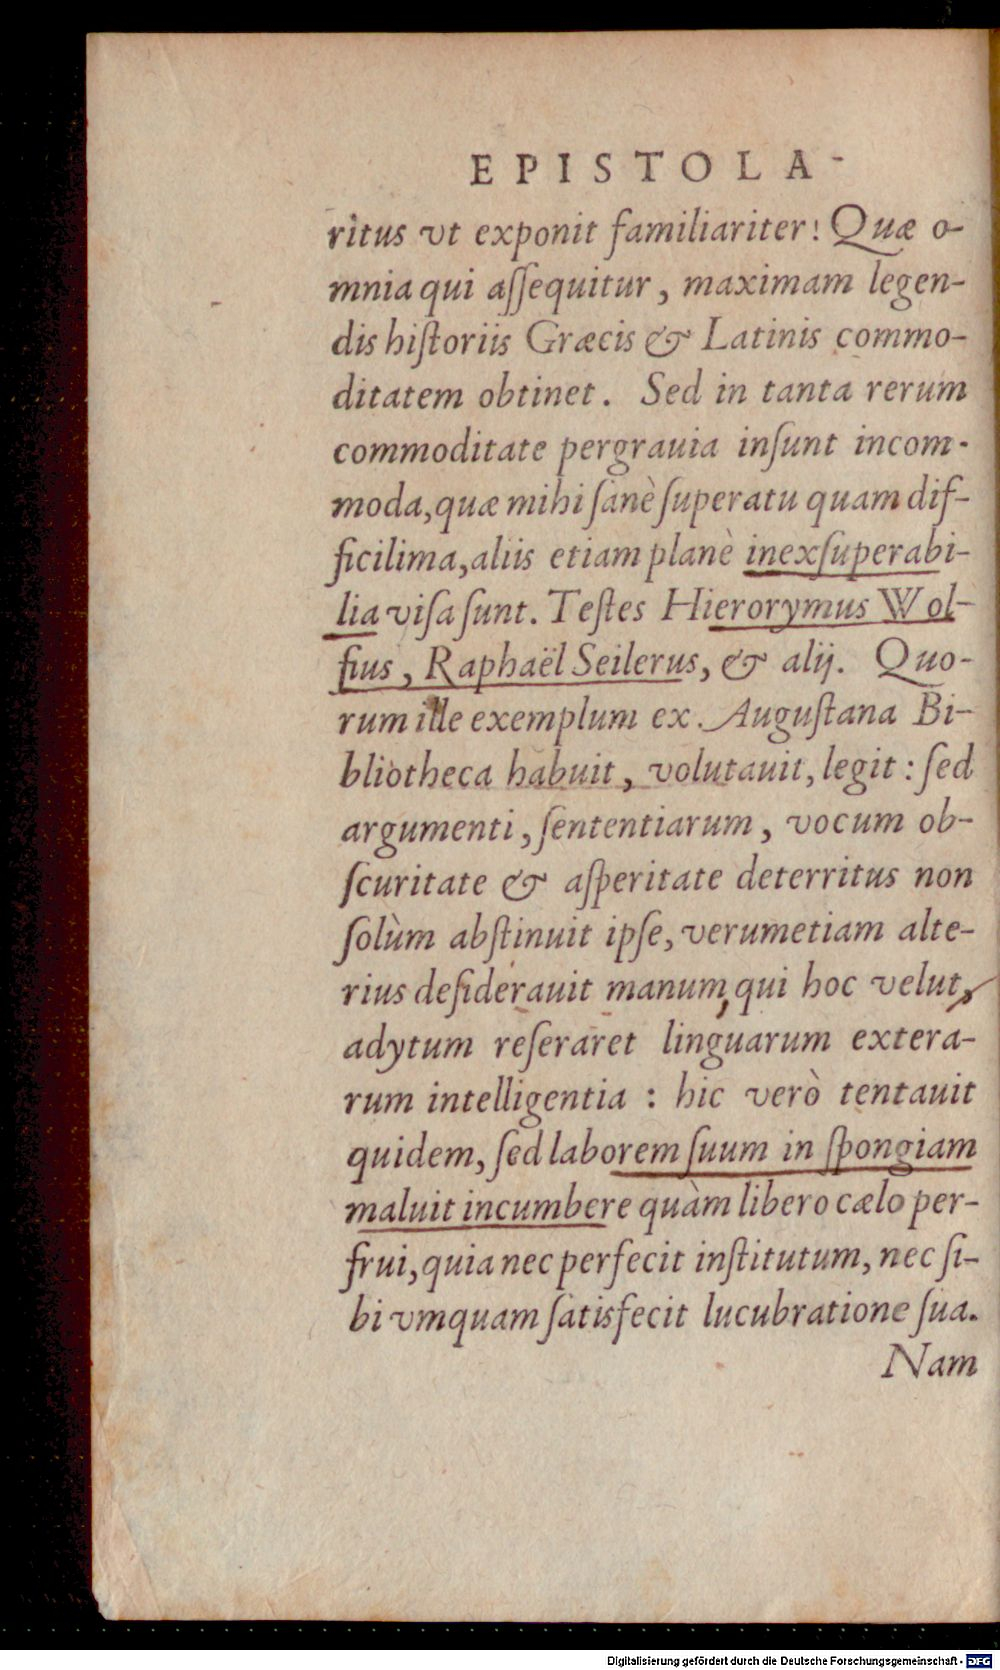 EPISTOLA
ritus vt exponit familiariter! Quæ o-
mnia qui aſſequitur, maximam legen-
dis hiſtoriis Græcis & Latinis commo-
ditatem obtinet. Sed in tanta rerum
commoditate pergrauia inſunt incom-
moda, quæ mihi ſanè ſuperatu quam dif-
ficilima, aliis etiam planè inexſuperabi-
lia viſa ſunt. Teſtes Hierorymus Wol-
fius, Raphaël Seilerus, & alij. Quo-
rum ille exemplum ex Auguſtana Bi-
bliotheca habuit, volutauit, legit: ſed
argumenti, ſententiarum, vocum ob-
ſcuritate & aſperitate deterritus non
ſolùm abſtinuit ipſe, verumetiam alte-
rius deſiderauit manum, qui hoc velut,
adytum reſeraret linguarum extera-
rum intelligentia: hic verò tentauit
quidem, ſed laborem ſuum in ſpongiam
maluit incumbere quàm libero cælo per-
frui, quia nec perfecit inſtitutum, nec ſi-
bi vmquam ſatisfecit lucubratione ſua.
Nam
Digitalisierung gefördert durch die Deutsche Forschungsgemeinschaft - DFG